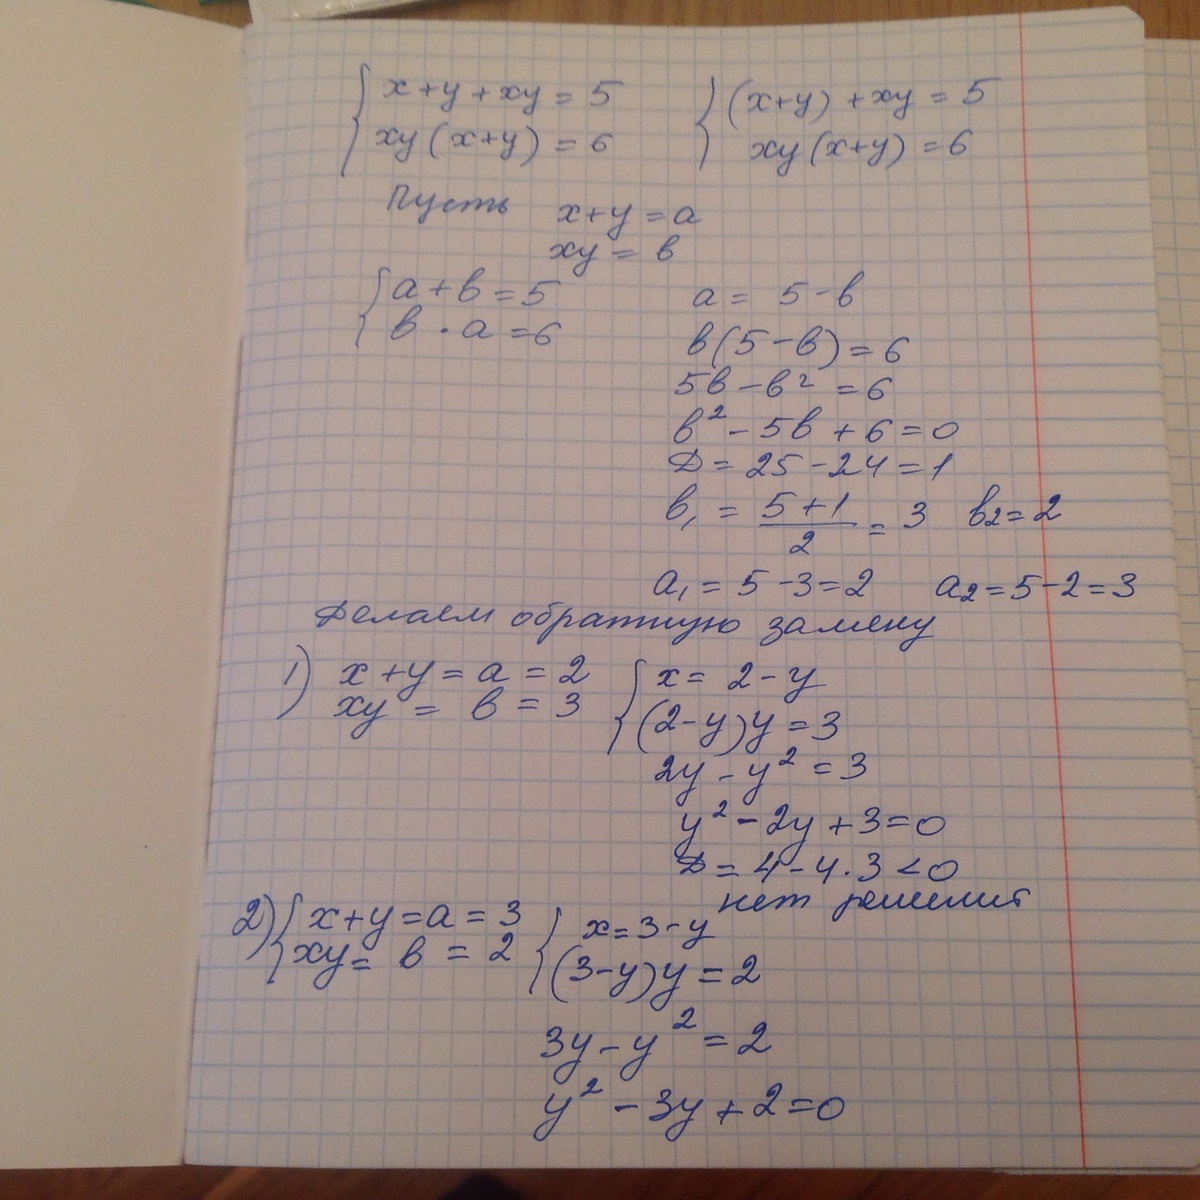 { x+y+xy=5   { (x+y)+xy=5
xy(x+y)=6   xy(x+y)=6
Пусть x+y=a
xy=в
{ a+в=5   a=5-в
в·a=6   в(5-в)=6
5в-в²=6
в²-5в+6=0
Д=25-24=1
в₁=(5+1)/2=3   в₂=2
a₁=5-3=2   a₂=5-2=3
Делаем обратную замену
1) x+y=a=2   { x=2-y
xy=в=3   (2-y)y=3
2y-y²=3
y²-2y+3=0
Д=4-4·3<0
нет решений
2) { x+y=a=3   { x=3-y
xy=в=2   (3-y)y=2
3y-y²=2
y²-3y+2=0